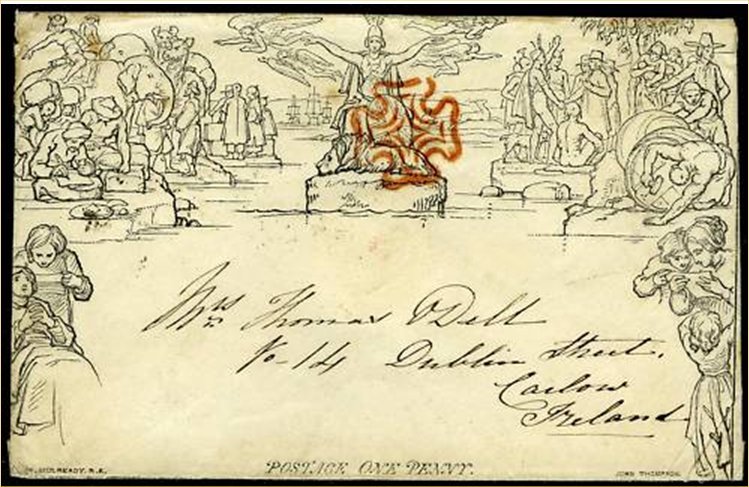 Mrs Thomas ODell
No-14 Dublin Street.
Carlow
Ireland
W. MULREADY. R.A.
POSTAGE ONE PENNY.
JOHN THOMPSON.